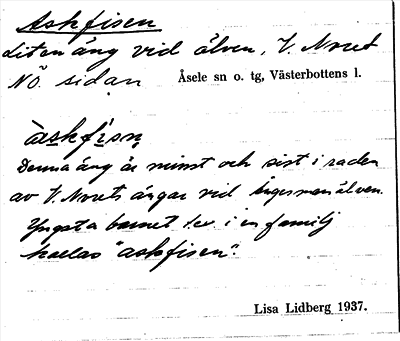 Askfisen
Liten äng vid älven, V. Noret
NÖ. sidan Åsele sn o. tg, Västerbottens l.
àskfìsn̥
Denna äng är minst och sist i raden
av V. Norets ängar vid Ångermanälven.
Yngsta barnet t.ex. i en familj
kallas "askfisen".
Lisa Lidberg 1937.